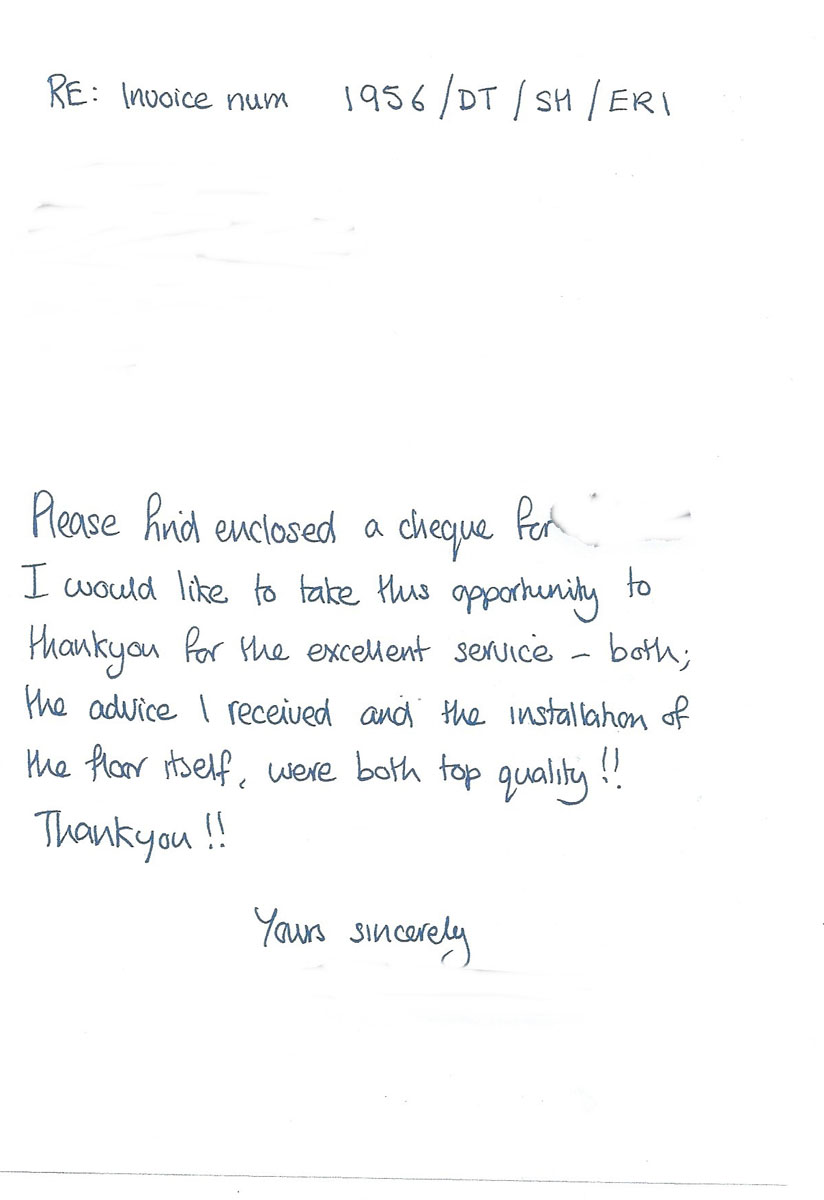 RE: Invoice num 1956/DT/SH/ERI
Please find enclosed a cheque for
I would like to take this opportunity to
thankyou for the excellent service – both;
the advice I received and the installation of
the floor itself, were both top quality!!
Thankyou!!
Yours sincerely